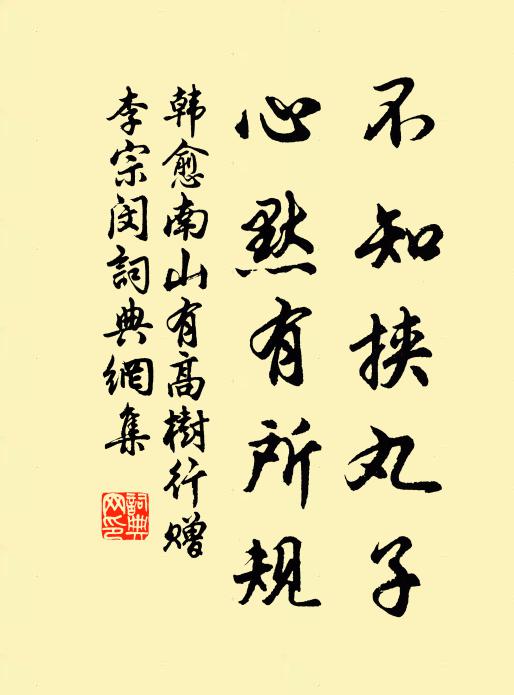 不知挟丸子
心黙有所规
韩愈南山有高樹行赠
李宗闵詞典網集
詞典網印